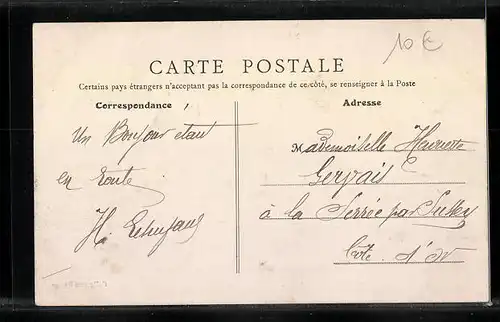 10 €
CARTE POSTALE
Certains pays étrangers n'acceptant pas la correspondance de ce côté, se renseigner à la Poste
Correspondance
Adresse
Un Bonjour étant
en route
H.
Mademoiselle Henriette
Gervais
à la Serrée par
Côte d'Or